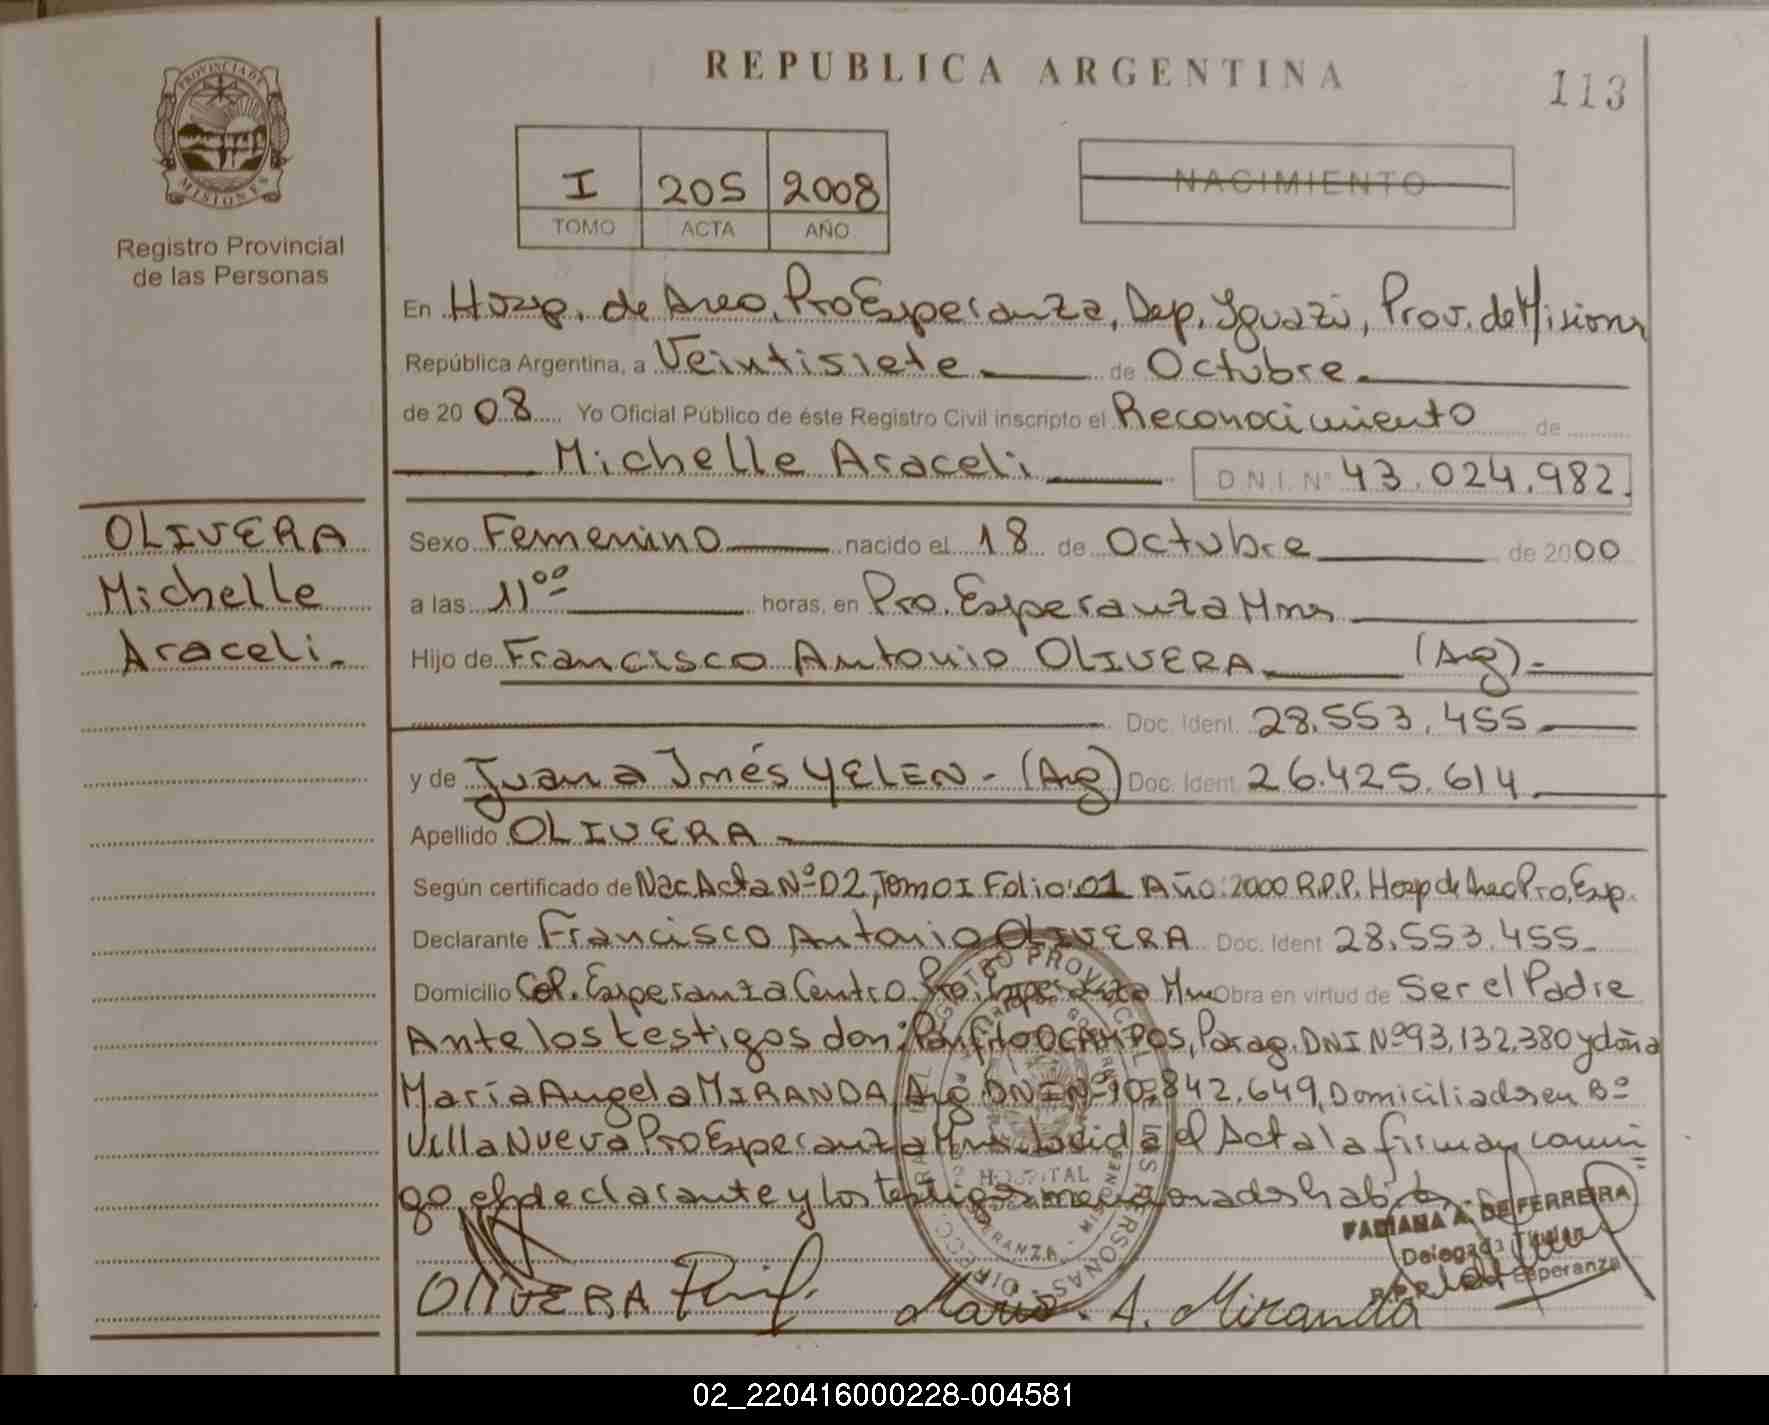 REPUBLICA ARGENTINA
113
PROVINCIA DE MISIONES
Registro Provincial
de las Personas
I 205 2008
TOMO ACTA AÑO
NACIMIENTO
En Hosp. de Area, Pto Esperanza, Dep. Iguazú, Prov. de Misiones
República Argentina, a Veintisiete de Octubre
de 2008 Yo Oficial Público de éste Registro Civil inscripto el Reconocimiento de
Michelle Araceli D.N.I. Nº 43.024.982.
OLIVERA
Michelle
Araceli.
Sexo Femenino nacido el 18 de Octubre de 2000
a las 11ºº horas, en Pto. Esperanza Mnes
Hijo de Francisco Antonio OLIVERA (Arg).-
Doc. Ident. 28.553.455
y de Juana Inés YELEN - (Arg) Doc. Ident. 26.425.614
Apellido OLIVERA
Según certificado de Nac. Acta Nº 02, Tomo I Folio: 01 Año: 2000 R.P.P. Hosp de Area Pto, Esp.
Declarante Francisco Antonio OLIVERA Doc. Ident 28.553.455
Domicilio Col. Esperanza Centro Pto. Esperanza Mnes Obra en virtud de Ser el Padre
Ante los testigos don: Pánfilo OCAMPOS, Parag. DNI Nº 93.132.380 y doña
María Angela MIRANDA, Arg DNI Nº 10.842.649, Domiciliados en Bº
Villa Nueva Pto Esperanza Mnes. Leida el Acta la firman conmi
go el declarante y los testigos mencionados habi
FABIANA A. DE FERREIRA
Delegada Titular
R.P.P. Esperanza
OLIVERA
Maria. A. Miranda
02_220416000228-004581